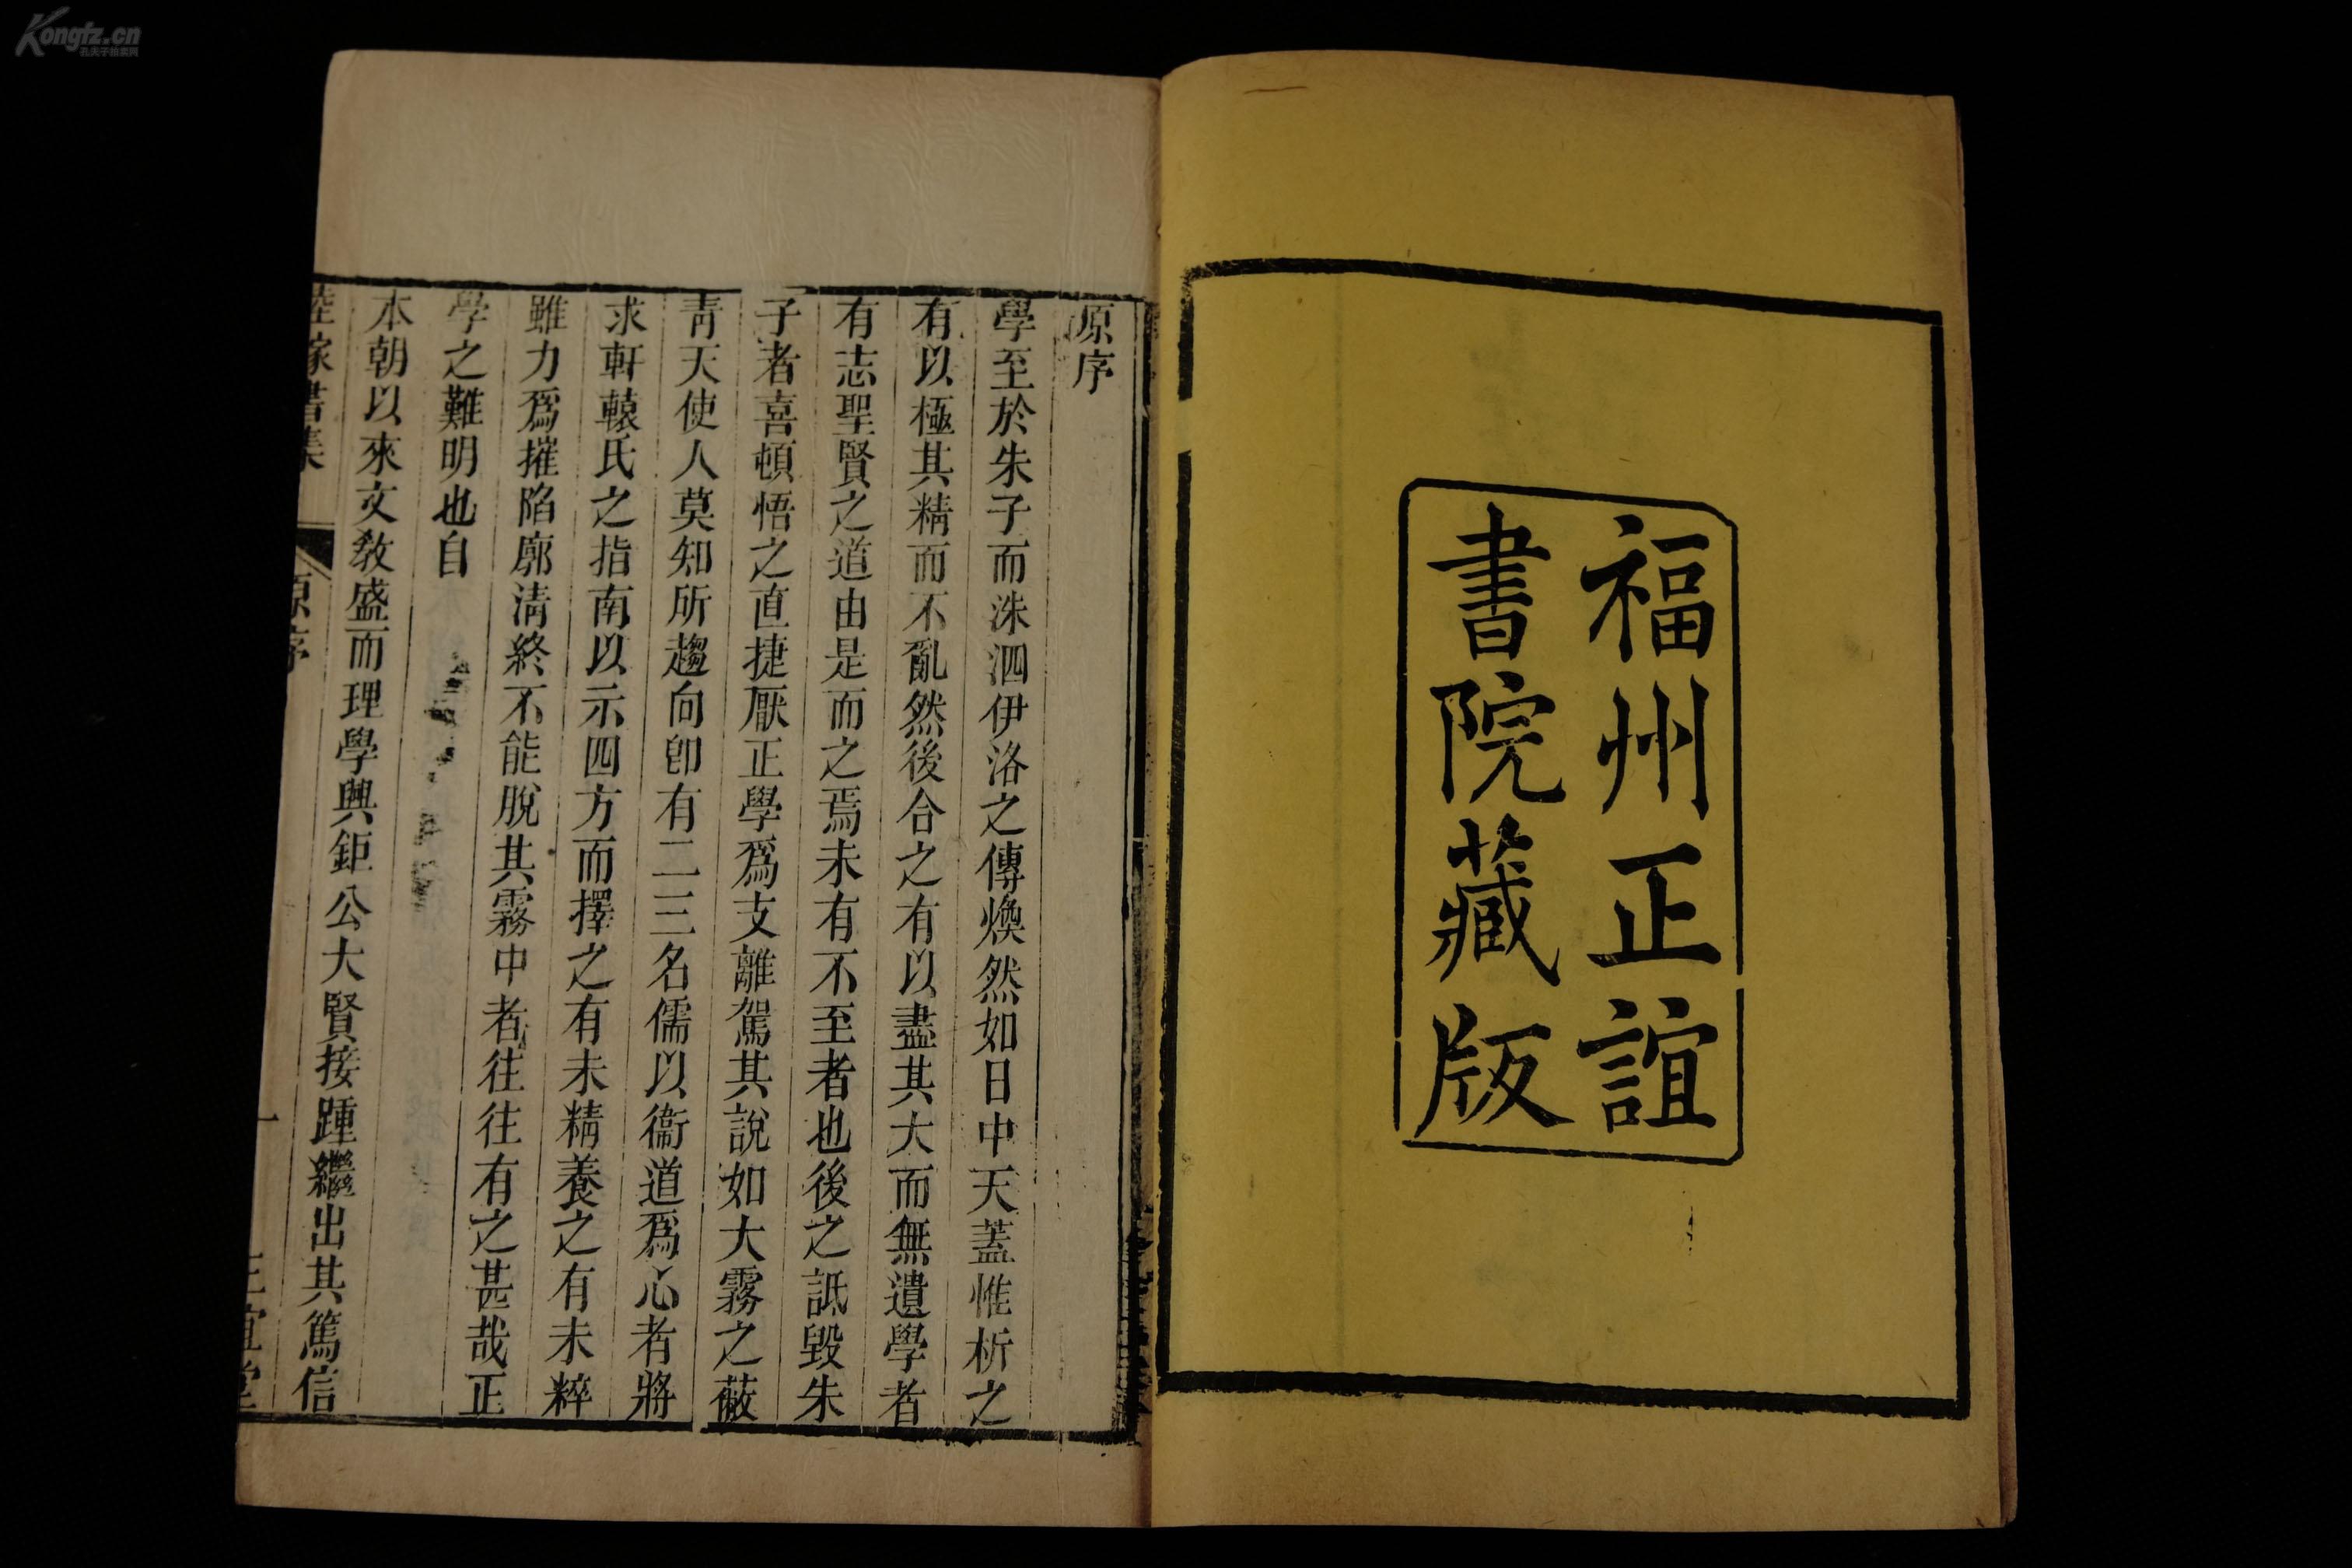 Kongfz.cn
孔夫子拍卖网
福州正誼
書院藏版
原序
學至於朱子而洙泗伊洛之傳煥然如日中天蓋惟析之
有以極其精而不亂然後合之有以盡其大而無遺學者
有志聖賢之道由是而之焉未有不至者也後之詆毀朱
子者喜頓悟之直捷厭正學爲支離駕其說如大霧之蔽
靑天使人莫知所趨向卽有二三名儒以衞道爲心者將
求軒轅氏之指南以示四方而擇之有未精養之有未粹
雖力爲摧陷廓淸終不能脫其霧中者往往有之甚哉正
學之難明也自
本朝以來文敎盛而理學興鉅公大賢接踵繼出其篤信
陸稼書集 原序 一 正誼堂